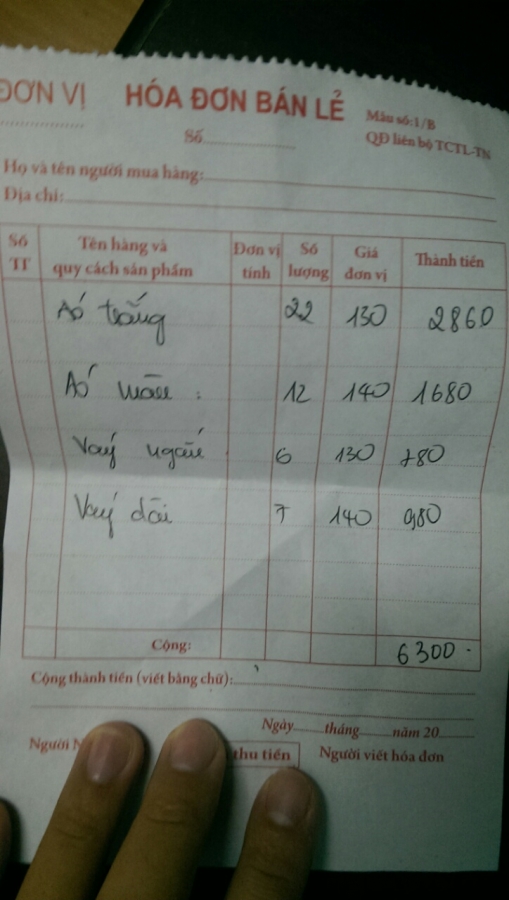 ĐƠN VỊ HÓA ĐƠN BÁN LẺ Mẫu số:1/B
Số QĐ liên bộ TCTL-TN
Họ và tên người mua hàng:
Địa chỉ:
Số TT Tên hàng và quy cách sản phẩm Đơn vị tính Số lượng Giá đơn vị Thành tiền
Áó trắng 22 130 2860
Áó màu : 12 140 1680
Váy ngắn 6 130 780
Váy dài 7 140 980
Cộng: 6300
Cộng thành tiền (viết bằng chữ):
Ngày tháng năm 20
Người thu tiền Người viết hóa đơn